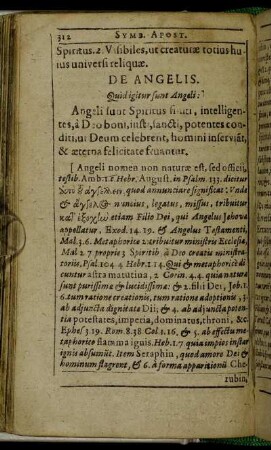 312 SYMB. APOST.
Spiritus. 2. Visibiles, ut creaturæ totius hu-
ius universi reliquæ.
DE ANGELIS.
Quid igitur sunt Angeli?
Angeli sunt Spiritus finiti, intelligen-
tes, à Deo boni, iusti, sancti, potentes con-
diti, ut Deum celebrent, homini inserviāt,
& æterna felicitate fruantur.
[ Angeli nomen non naturæ est, sed officij,
testib. Amb. 1. f. Hebr. August. in Psalm. 
quod annunciare significat: Unde
& nuncius, legatus, missus, tribuitur
etiam Filio Dei, qui Angelus Jehovæ
appellatur. Exod. 14. 19. & Angelus Testamenti,
Mal. 3. 6. Metaphoricè attribuitur ministris Ecclesiæ,
Mal. 2. 7 propriè 3 Spiritib. à Deo creatis ministra-
toriis, Psal. 104. 4 Hebr. 1. 14. Qui & metaphoricè di-
cuntur astra matutina, 2 Corin. 4. 4. quia natura
sunt purissimæ & lucidissimæ: & 2. filii Dei, Job. 1.
6. tum ratione creationis, tum ratione adoptionis, 3.
ab adjuncta dignitate Dii; & 4. ab adjuncta poten-
tia potestates, imperia, dominatus, throni, &c.
Ephes. 3. 19. Rom. 8. 38 Col. 1. 16. & 5. ab effectu me-
taphoricè flamma ignis. Heb. 1. 7 quia impios instar
ignis absumūt. Item Seraphin, quod amore Dei &
hominum flagrent, & 6. à forma apparitionū Che-
rubin,